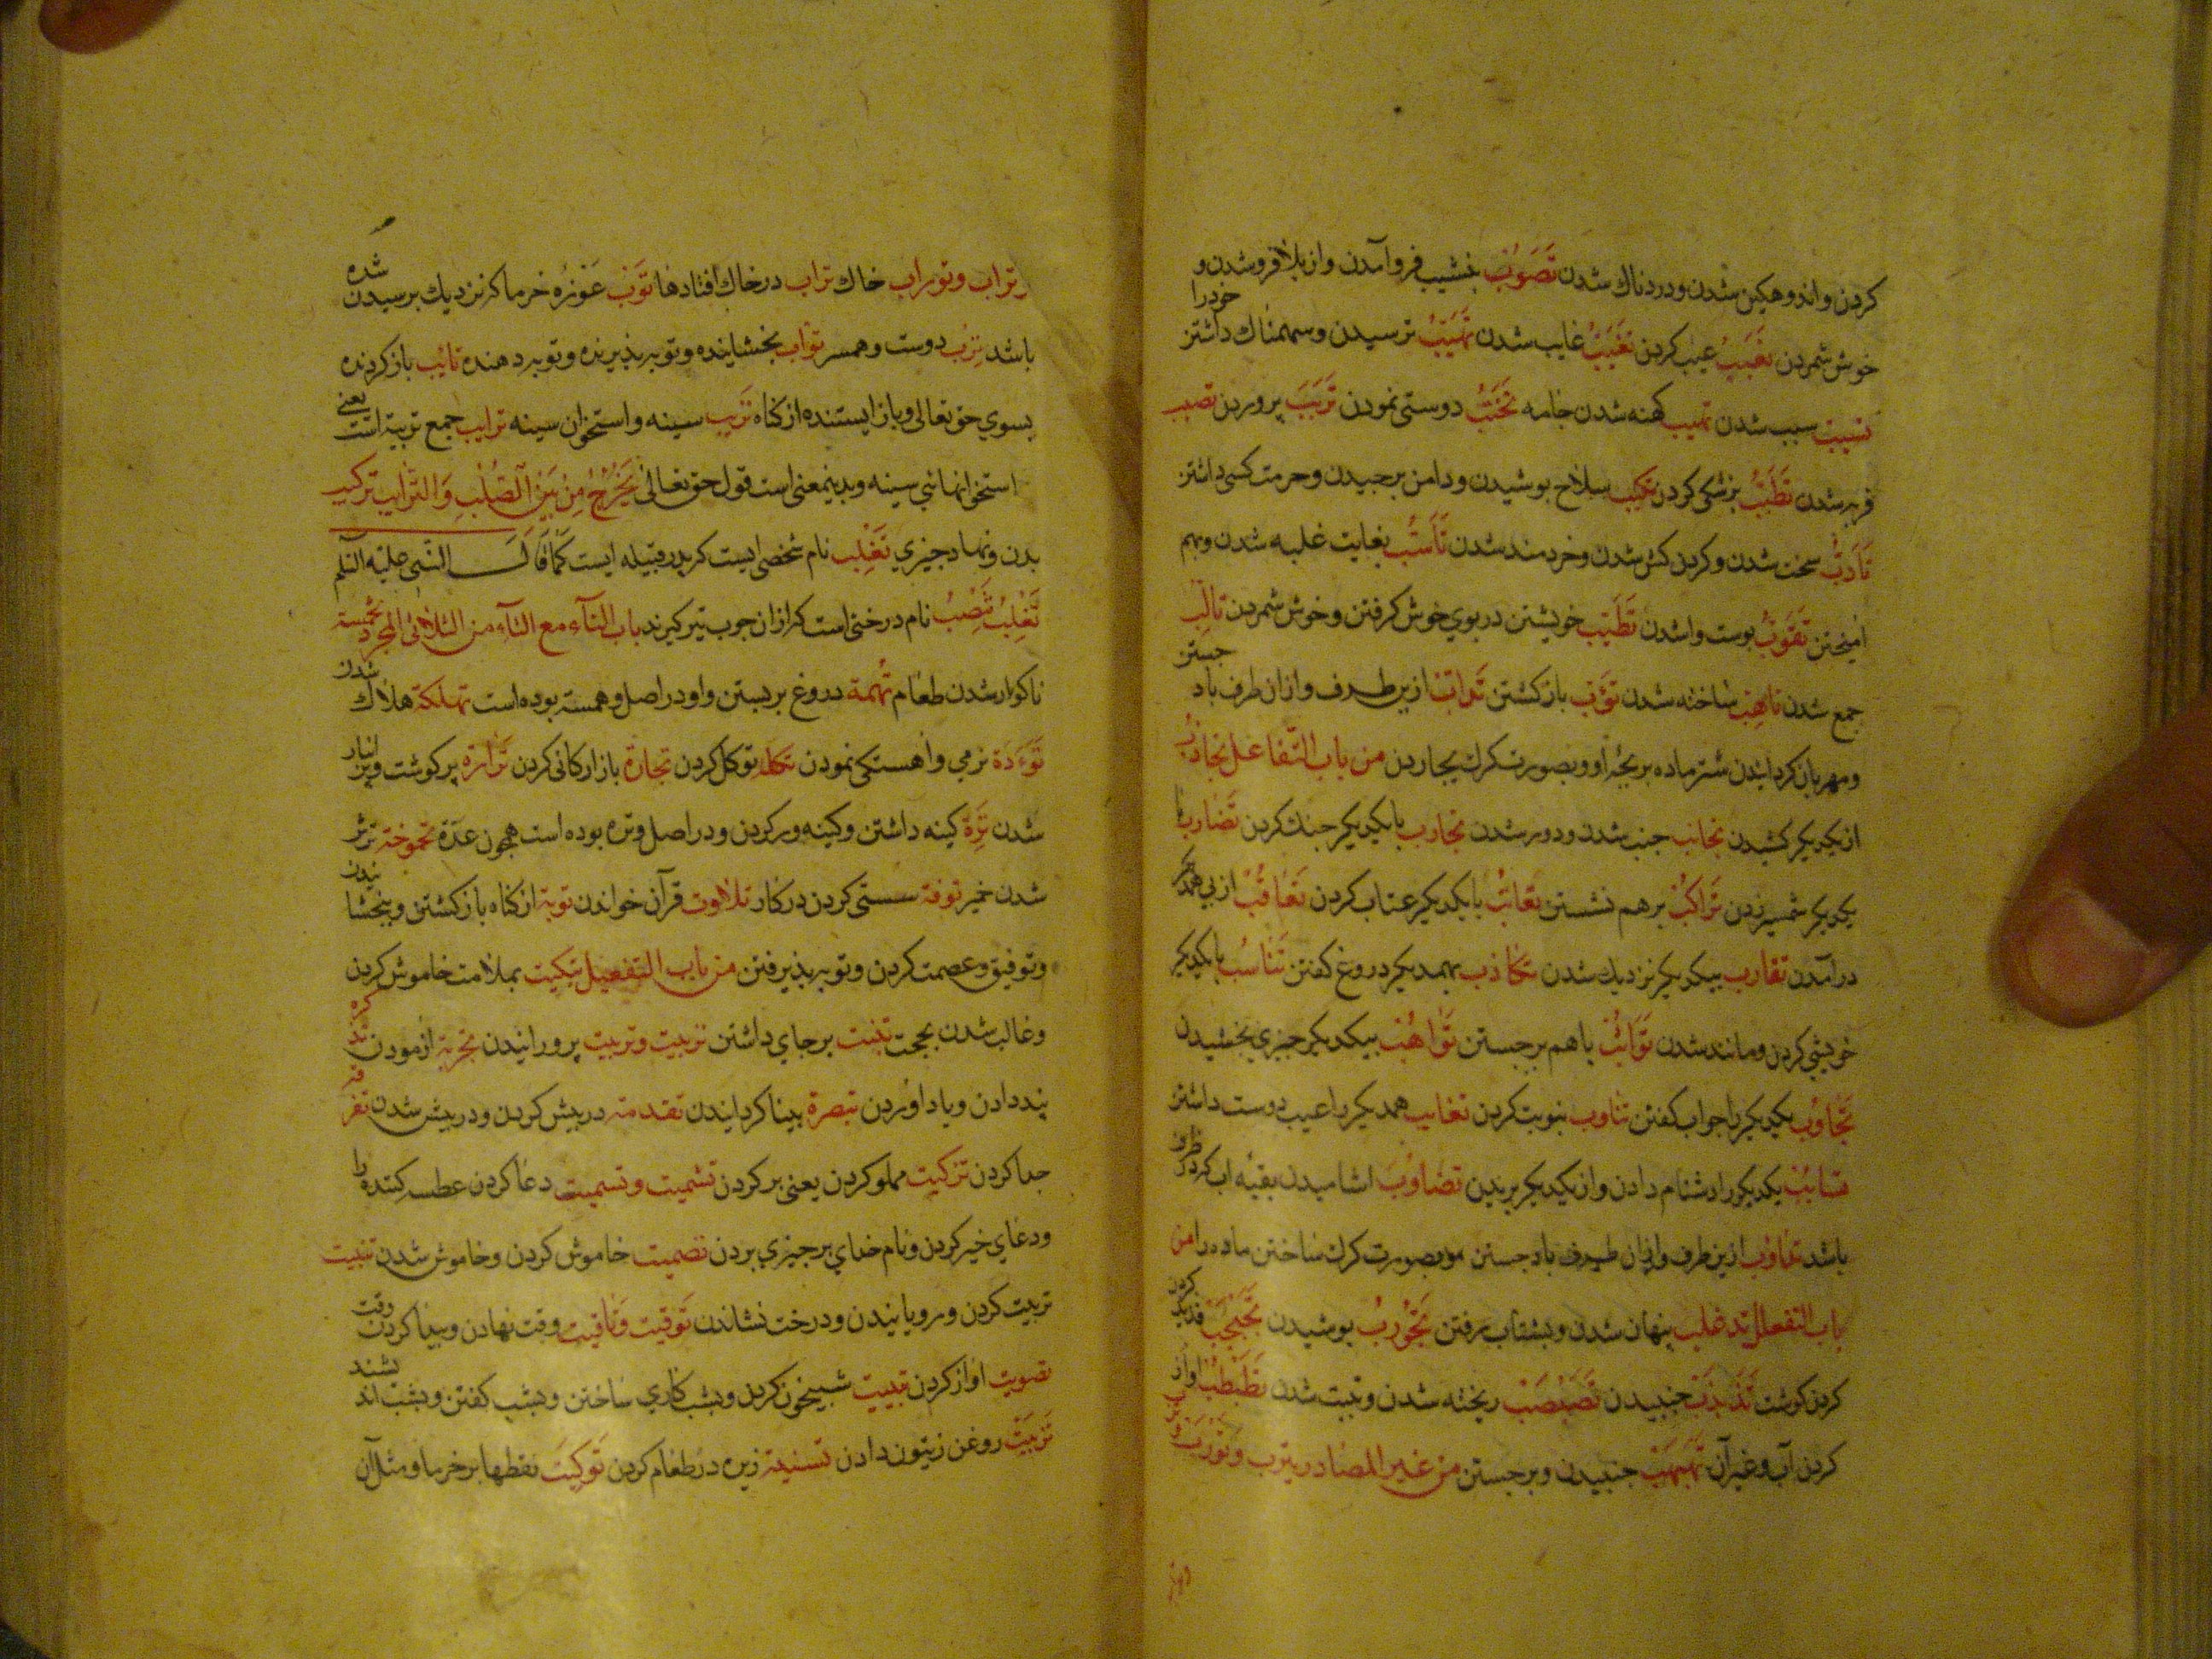 کردن و اندوهکین شدن و دردناك شدن تَصَوُّب بنشیب فرو آمدن و از بالا فروشدن و
خوش شمردن تَعَیُّب عیب کردن تَغَیُّب غایب شدن تَهَیُّب ترسیدن و سهمناك داشتن خود را
تسبّب سبب شدن کهنه شدن جامه تَحَبُّب دوستی نمودن تَرَبُّب پروردن
فربه شدن تَطَبُّب بزشکی کردن سلاح بوشیدن و دامن برجیدن و حرمت کسی داشتن
تَأَرُّب سخت شدن و کردن کش شدن و خردمند شدن تَأَشُّب بغایت غلبه شدن و بهم
امیختن تَقَوُّب بوست واشدن تَطَیُّب خویشتن در بوي خوش کرفتن و خوش شمردن تَأَلُّب
جمع شدن تأهّب ساخته شدن تَؤُّب باز کشتن تَذَأُّب ازین طرف و ازان طرف باد جستن
و مهربان کردانیدن شتر ماده بر بچهٔ او و بصورت کرك بجاردن من باب التّفاعل تجاذب
از یکدیکر کشیدن تجانب جنب شدن و دور شدن تحارب با یکدیکر جنك کردن تَضارب با
یکدیکر شمشیر زدن تَراکُب برهم نشستن تعاتُب با یکدیکر عتاب کردن تَعاقُب از پی همدیکر
در آمدن تقارب بیکدیکر نزدیك شدن تکاذب بهمدیکر دروغ کفتن تَناسُب با یکدیکر
خویشی کردن و مانند شدن تَواثُب با هم برجستن تَواهُب بیکدیکر جیزي بخشیدن
تَجاوُب یکدیکر را جواب کفتن تناوب بنوبت کردن تعایب همدیکر را عیب دوست داشتن
تسابُب یکدیکر را دشنام دادن و از یکدیکر بریدن تصاوُب اشامیدن بقیهٔ اب که در ظرف
باشد تذاؤب ازین طرف و ازان طرف باد جستن و بصورت کرك ساختن ماده را من
باب التفعلل تدغلب پنهان شدن و بشتاب رفتن تَجَورُب بوشیدن تَجَبْجُب قدید کردن
کردن کوشت تَذَبْذُب جنبیدن تَصَبْصُب ریخته شدن و شدن تَطَبْطُب اواز
کردن آب و غیر آن جنبیدن و برجستن من غیر المصادر یترب و تَوْرَب و
تراب و توراب خاك تراب در خاك افتادها تَوَب غوزهٔ خرما که نزدیك برسیدن شده
باشد تِرب دوست و همسر توّاب بخشاینده و توبه پذیرنده و توبه دهنده تائب باز کردنده
بسوي حق تعالی و باز ایستنده از کناه تَریب سینه و استخوان سینه ترایب جمع تریبة است یعنی
استخوانهائی سینه و بدینمعنی است قول حق تعالی یَخْرُجُ مِنْ بَیْنِ الصُّلْبِ وَالتَّرَایِبِ ترکیب
بدن و نهاد جیزي تَغْلِب نام شخصی ایست که پدر قبیله ایست کَمَا قَالَ النّبی علیه السّلم
تَغْلِبُ تَنْصُب نام درختی است که ازان جوب تیر کیرند باب التّاء مع التّاء من الثلاثی المجرّد تخمة
ناکوار شدن طعام تُهمة دروغ بر بستن و او در اصل وهمة بوده است تهلکة هلاك شدن
تُؤَدَة نرمی و اهستکی نمودن تکلة توکل کردن تجارة بازارکانی کردن تَرارة پر کوشت و
شدن تِرَة کینه داشتن و کینه ور کردن و در اصل وتره بوده است همچون عدة تَموخة ترش
شدن خمیر توفة سستی کردن در کار تلاوت قرآن خواندن توبة از کناه باز کشتن و بخشائیدن
و توفیق و عصمت کردن و توبه پذیرفتن من باب التفعیل تبکیت بملامت خاموش کردن
و غالب شدن بحجت تثبیت برجاي داشتن تربیت و تربیت پرورانیدن تجربة ازمودن تذکره
پند دادن و یاد اوردن تبصرة بینا کردانیدن تقدمة در پیش کردن و در پیش شدن تفرقة
جدا کردن تزکیت مملو کردن یعنی پر کردن تشمیت و تسمیت دعا کردن عطسه کننده را
و دعاي خیر کردن و نام خداي بر جیزي بردن تصمیت خاموش کردن و خاموش شدن تنبیت
تربیت کردن و رویانیدن و درخت نشاندن تَوقیت و تاقیت وقت نهادن و پیدا کردن وقت
تصویت اواز کردن تبییت شبیخون کردن و بشب کاري ساختن و بشب کفتن و بشب اند یشند
تزییت روغن زیتون دادن زیره در طعام کردن تَوکیت نقطها بر خرما و مثل آن